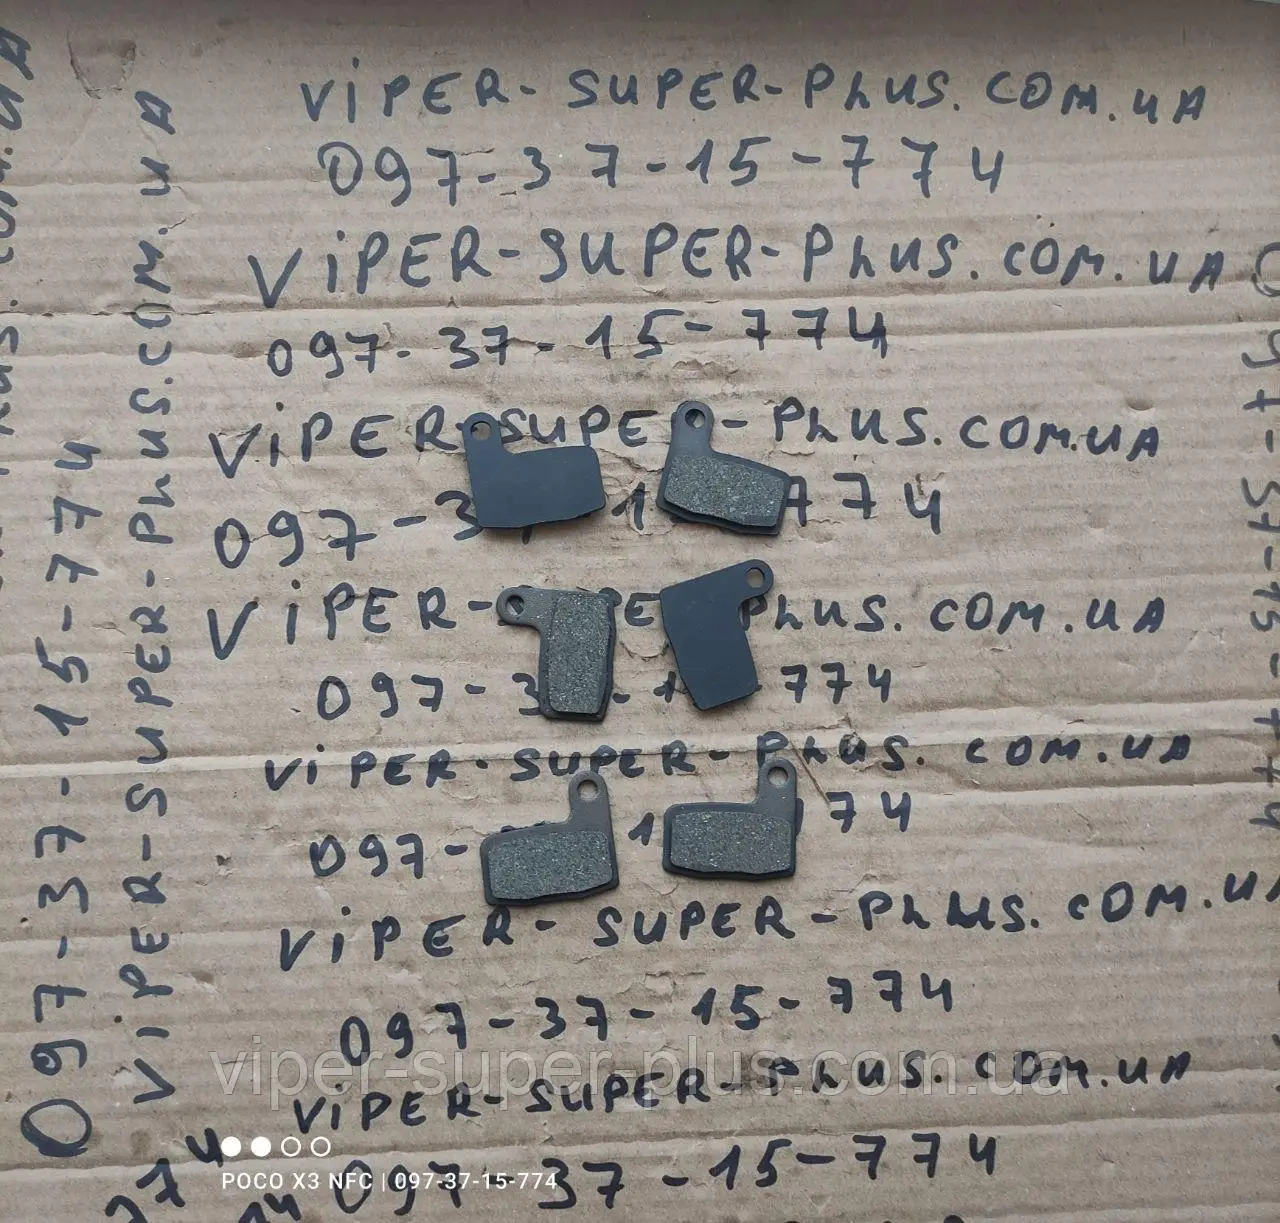 ViPER-SUPER-PLUS.COM.UA
097-37-15-774
ViPER-SUPER-PLUS.COM.UA
097-37-15-774
ViPER-SUPE -PLUS.COM.UA
097-3 1 774
ViPER- PE PLUS.COM.UA
097-3 - 774
ViPER-SUPER-PLUS.COM.UA
097- 1 74
ViPER-SUPER-PLUS.COM.UA
097-37-15-774
viper-super-plus.com.ua
ViPER-SUPER-PLUS.COM.UA
POCO X3 NFC | 097-37-15-774
097-37-15-774
097-37-15-774
ViPER-SUPER-PLUS.COM.UA